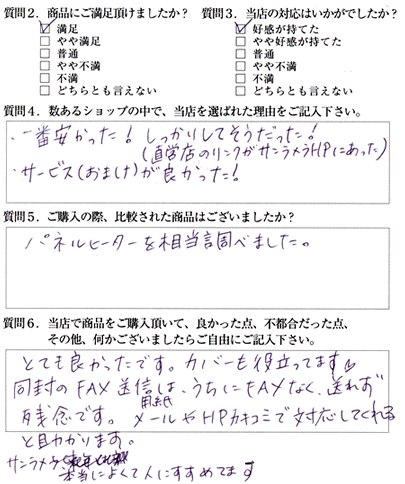 質問2．商品にご満足頂けましたか？
☑ 満足
□ やや満足
□ 普通
□ やや不満
□ 不満
□ どちらとも言えない
質問3．当店の対応はいかがでしたか？
☑ 好感が持てた
□ やや好感が持てた
□ 普通
□ やや不満
□ 不満
□ どちらとも言えない
質問4．数あるショップの中で、当店を選ばれた理由をご記入下さい。
・一番安かった！ しっかりしてそうだった！
(直営店のリンクがサンラメラHPにあった)
・サービス(おまけ)が良かった！
質問5．ご購入の際、比較された商品はございましたか？
パネルヒーターを相当調べました。
質問6．当店で商品をご購入頂いて、良かった点、不都合だった点、
その他、何かございましたらご自由にご記入下さい。
とても良かったです。カバーも役立ってます
同封のFAX送信用紙は、うちにFAXなく、送れず
残念です。メールやHPカキコミで対応してくれる
と助かります。
サンラメラ
本当によくて人にすすめてます